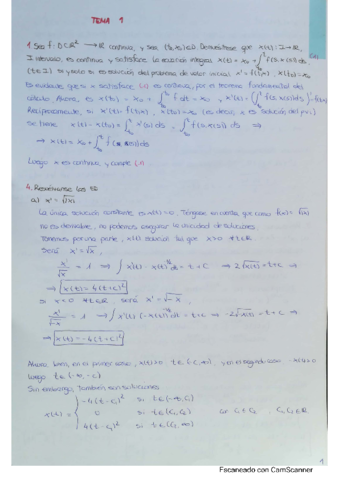 TEMA 1
1. Sea f: D⊂ℝ² → ℝ continua, y sea (t₀,x₀)∈D. Demuéstrese que x(t): I→ℝ,
I intervalo, es continua y satisface la ecuación integral x(t) = x₀ + ∫ f(s,x(s))ds
(t∈I) si y solo si es solución del problema de valor inicial x' = f(t,x), x(t₀) = x₀
Es evidente que si x satisface es continua, por el teorema fundamental del
cálculo. Ahora, es x(t₀) = x₀ + ∫ f dt = x₀, y x'(t) = (∫ f(s,x(s))ds)' = f(t,x)
Recíprocamente, si x'(t) = f(t,x), x(t₀) = x₀ (es decir, x es solución del p.v.i.)
Se tiene x(t) - x(t₀) = ∫ x'(s) ds = ∫ f(s,x(s))ds ⇒
⇒ x(t) = x₀ + ∫ f(s,x(s))ds
Luego x es continua y cumple
4. Resuélvanse las
a) x' = √|x|
La única solución constante es x(t) = 0. Téngase en cuenta que como f(x) = √|x|
no es derivable, no podemos asegurar la unicidad de soluciones.
Tenemos por una parte, x(t) solución tq que x>0 ∀t∈ℝ
Será x' = √x
x'/√x = 1 ⇒ ∫ x'(t) · x(t) dt = t + C ⇒ 2√x(t) = t + C ⇒
Si x<0 ∀t∈ℝ, será x' = √-x
x'/√-x = 1 ⇒ ∫ x'(t) (-x(t)) dt = t + C ⇒ -2√-x(t) = t + C ⇒
Ahora bien, en el primer caso, x(t)>0 t∈(-C,∞), y en el segundo caso -x(t)>0
luego t∈(-∞,-C)
Sin embargo, también son soluciones
x(t) = 0 si t∈(C₁,C₂) con C₁<C₂, C₁,C₂∈ℝ
1
Escaneado con CamScanner